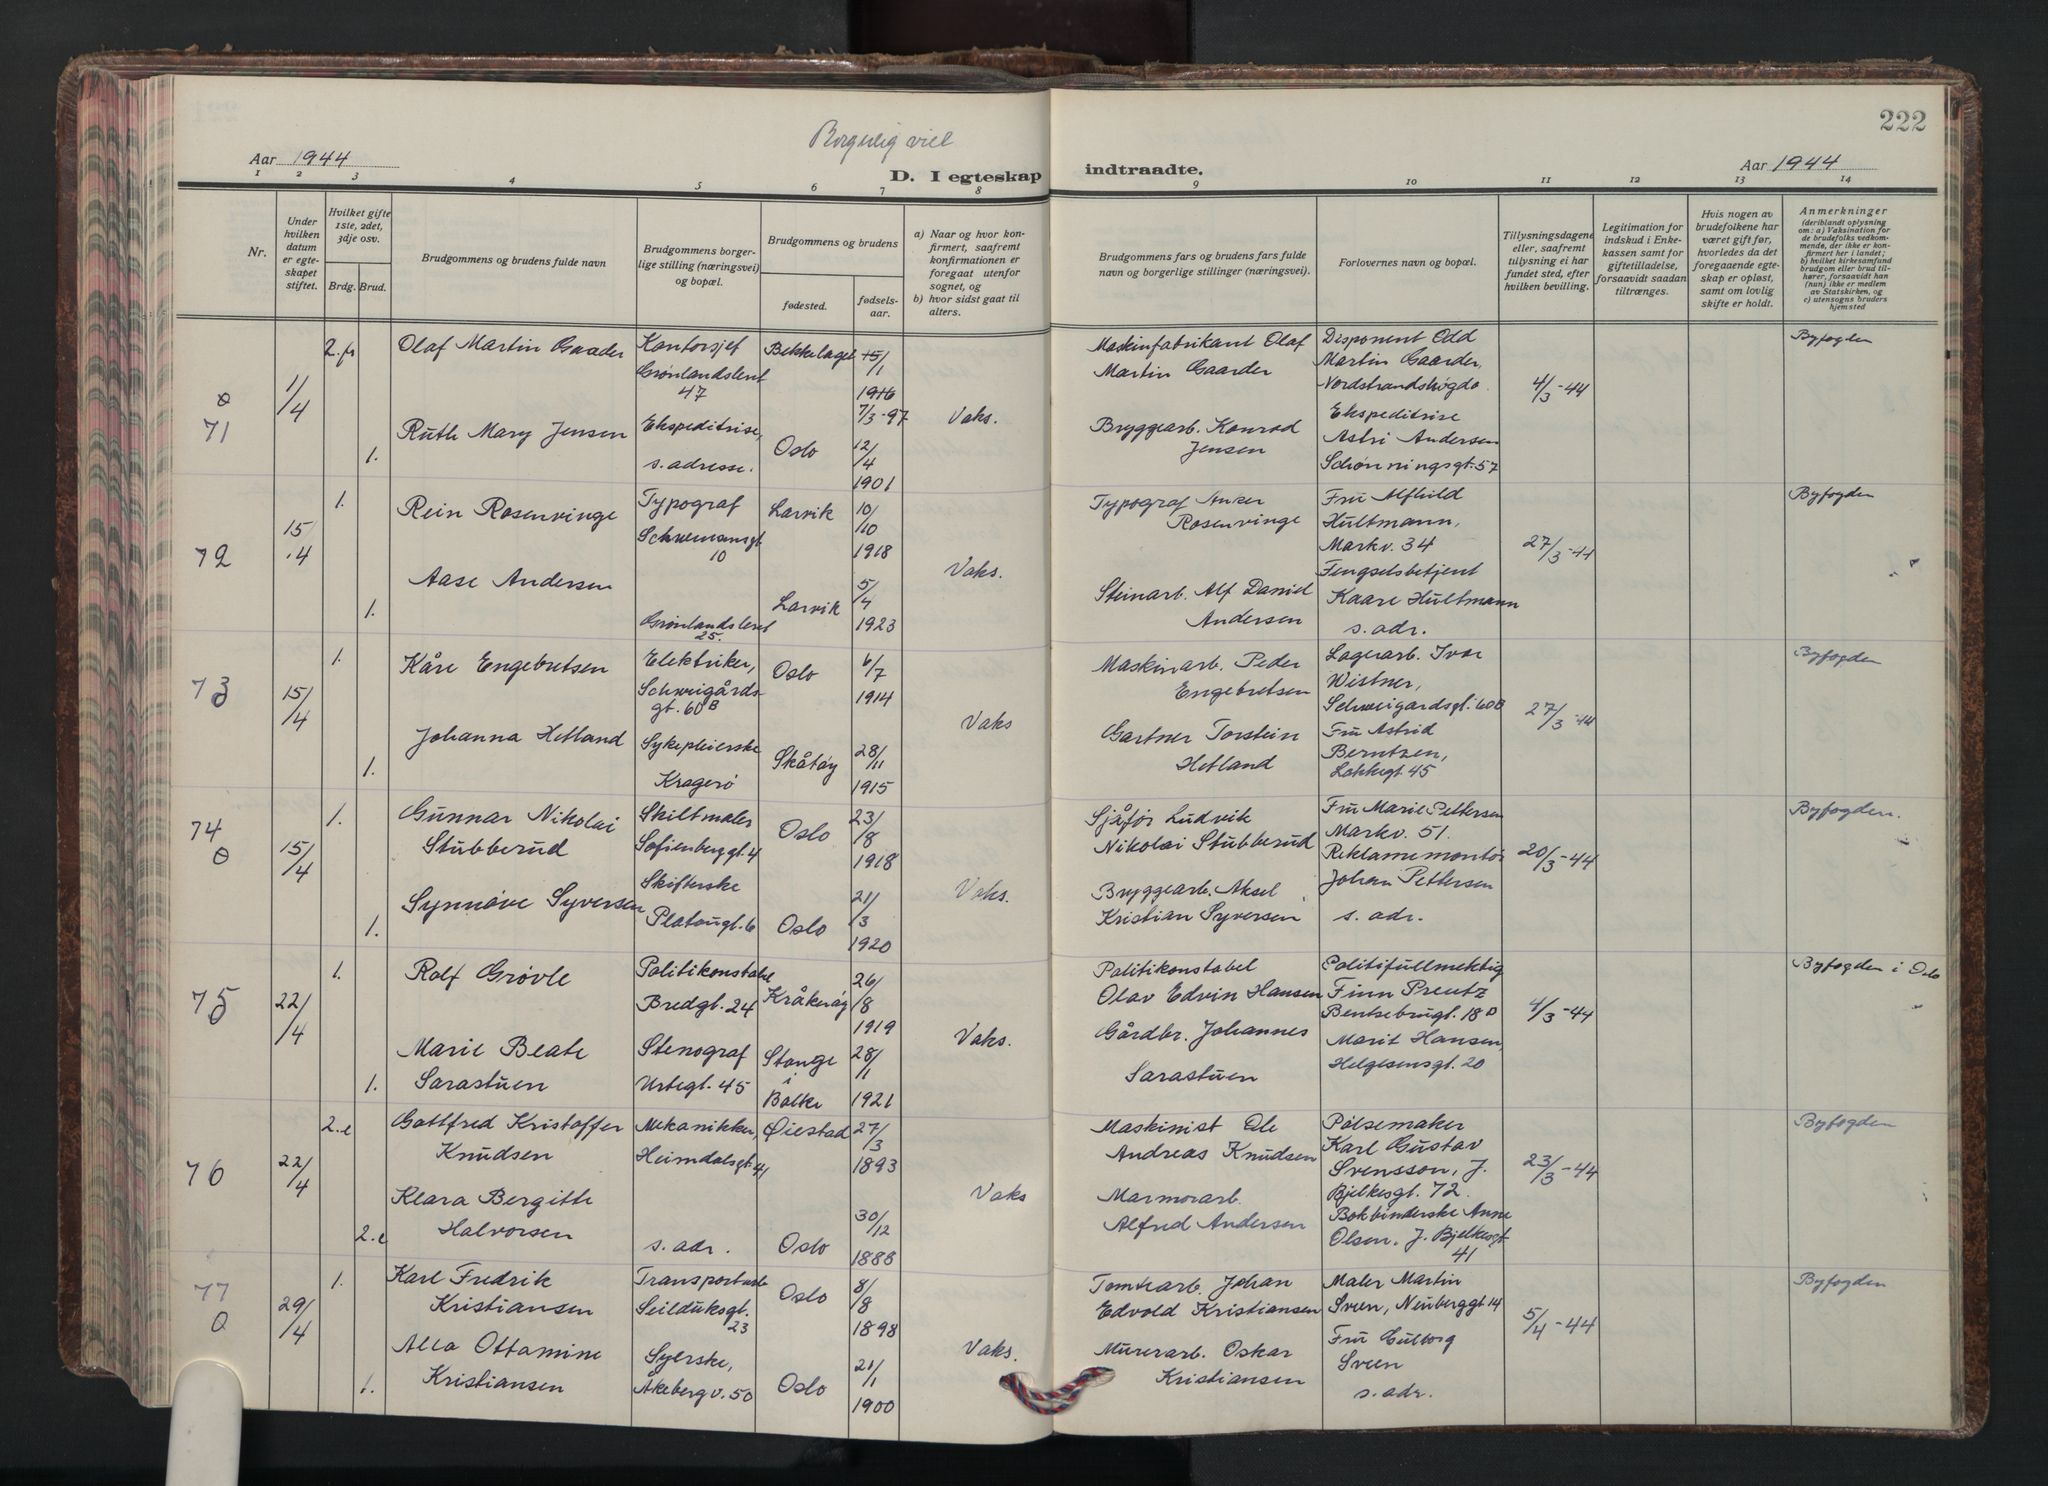 222
Borgerlig viet
Aar 1944
D. I egteskap indtraadte.
Aar 1944
1 2 3 4 5 6 7 8 9 10 11 12 13 14
Nr.
Under hvilken datum er egteskapet stiftet.
Hvilket gifte 1ste, 2det, 3dje osv.
Brdg. Brud.
Brudgommens og brudens fulde navn
Brudgommens borgerlige stilling (næringsvei) og bopæl.
Brudgommens og brudens
fødested.
fødselsaar.
a) Naar og hvor konfirmert, saafremt konfirmationen er foregaat utenfor sognet, og
b) hvor sidst gaat til alters.
Brudgommens fars og brudens fars fulde navn og borgerlige stillinger (næringsvei).
Forlovernes navn og bopæl.
Tillysningsdagene eller, saafremt tillysning ei har fundet sted, efter hvilken bevilling.
Legitimation for indskud i Enkekassen samt for giftetilladelse, forsaavidt saadan tiltrænges.
Hvis nogen av brudefolkene har været gift før, hvorledes da det foregaaende egteskap er opløst, samt om lovlig skifte er holdt.
Anmerkninger
(deriblandt oplysning om: a) Vaksination for de brudefolks vedkommende, der ikke er konfirmert her i landet; b) hvilket kirkesamfund brudgom eller brud tilhører, forsaavidt han (hun) ikke er medlem av Statskirken, og c) utensogns bruders hjemsted
71
1/4
Olaf Martin Gaarder
Kontorsjef
Grønlandsleret
47
Bekkelaget
7/3-97
Vaks.
Maskinfabrikant Olaf
Martin Gaarder
Disponent Odd
Martin Gaarder,
Nordstrandshøgda
4/3-44
Byfogden
1.
Ruth Mary Jensen
Ekspeditrise,
s. adresse.
Oslo
12/4
1901
Bryggearb. Konrad
Jensen
Ekspeditrise
Astri Andersen
Schønningsgt. 57
72
15/4
1.
Rein Rosenvinge
Typograf
Schwensensgt
10
Larvik
10/10
1918
Vaks.
Typograf Anker
Rosenvinge
Fru Alfhild
Hultmann,
Markv. 34
27/3-44
Byfogden
1.
Aase Andersen
Grønlandsleret
25.
Larvik
5/4
1923
Steinarb. Alf Daniel
Andersen
Fengselsbetjent
Kaare Hultmann
s. adr.
73
15/4
1.
Kåre Engebretsen
Elektriker,
Schweigårds-
gt. 60 B
Oslo
6/7
1914
Vaks
Maskinarb. Peder
Engebretsen
Lagerarb. Ivar
Wistner,
Schweigardsgt. 60B
27/3-44
Byfogden
1.
Johanna Hetland
Sykepleierske
Kragerø
Skåtøy
28/11
1915
Gartner Torstein
Hetland
Fru Astrid
Berntzen,
Lakkegt. 45
74
15/4
1.
Gunnar Nikolai
Stubberud
Skiltmaler
Sofienberggt. 4
Oslo
23/8
1918
Vaks.
Sjåfør Ludvik
Nikolai Stubberud
Fru Marie Pettersen
Markv. 51.
20/3-44
Byfogden.
1.
Synnøve Syversen
Skifterske
Platougt. 6
Oslo
21/3
1920
Bryggearb. Aksel
Kristian Syversen
Reklamemontør
Johan Pettersen
s. adr.
75
22/4
1.
Rolf Grøvle
Politikonstabel
Bredgt. 24
Kråkerøy
26/8
1919
Vaks.
Politikonstabel
Olav Edvin Hansen
Politifullmektig
Finn Preutz
Bentsebrugt. 18 B
4/3-44
Byfogden i Oslo
1.
Marie Beate
Sarastuen
Stenograf
Urtegt. 45
Stange
i
28/1
1921
Gårdbr. Johannes
Sarastuen
Marit Hansen,
Helgesensgt. 20
76
22/4
2.e
Gottfred Kristoffer
Knudsen
Mekanikker,
Heimdalsgt. 41
Øiestad
27/3
1893
Vaks
Maskinist Ole
Andreas Knudsen
Pølsemaker
Karl Gustav
Svensson, J.
Bjelkesgt. 72.
23/3-44
Byfogden
2.e
Klara Bergitte
Halvorsen
s. adr.
Oslo
30/12
1888
Marmorarb.
Alfred Andersen
Bokbinderske Anne
Olsen, J. Bjelkesgt
41
77
29/4
1.
Karl Fredrik
Kristiansen
Transportarb
Seilduksgt.
23
Oslo
8/8
1898
Vaks.
Tomtearb. Johan
Edvold Kristiansen
Maler Martin
Sveen, Neuberggt. 14
5/4-44
Byfogden
1.
Ottamine
Kristiansen
Syerske,
Åkebergv. 50
Oslo
21/1
1900
Murerarb. Oskar
Kristiansen
Fru Gulborg
Sveen
s. adr.